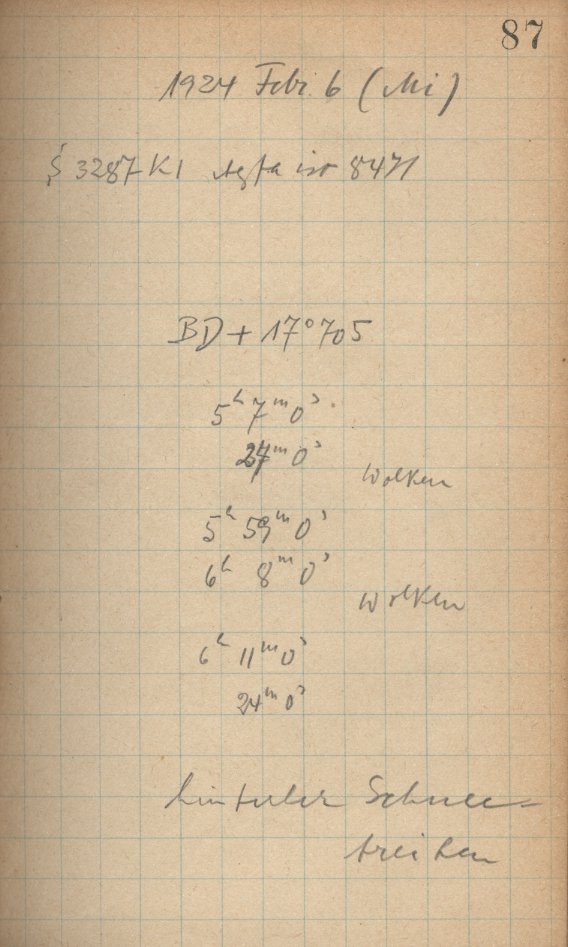 87
1924 Febr. 6 (Mi)
S 3287 K1 Agfa iso 8471
BD + 17°705
5h 7m 0s
27m 0s
Wolken
5h 59m 0s
6h 8m 0s
Wolken
6h 11m 0s
24m 0s
Schnee=
treiben